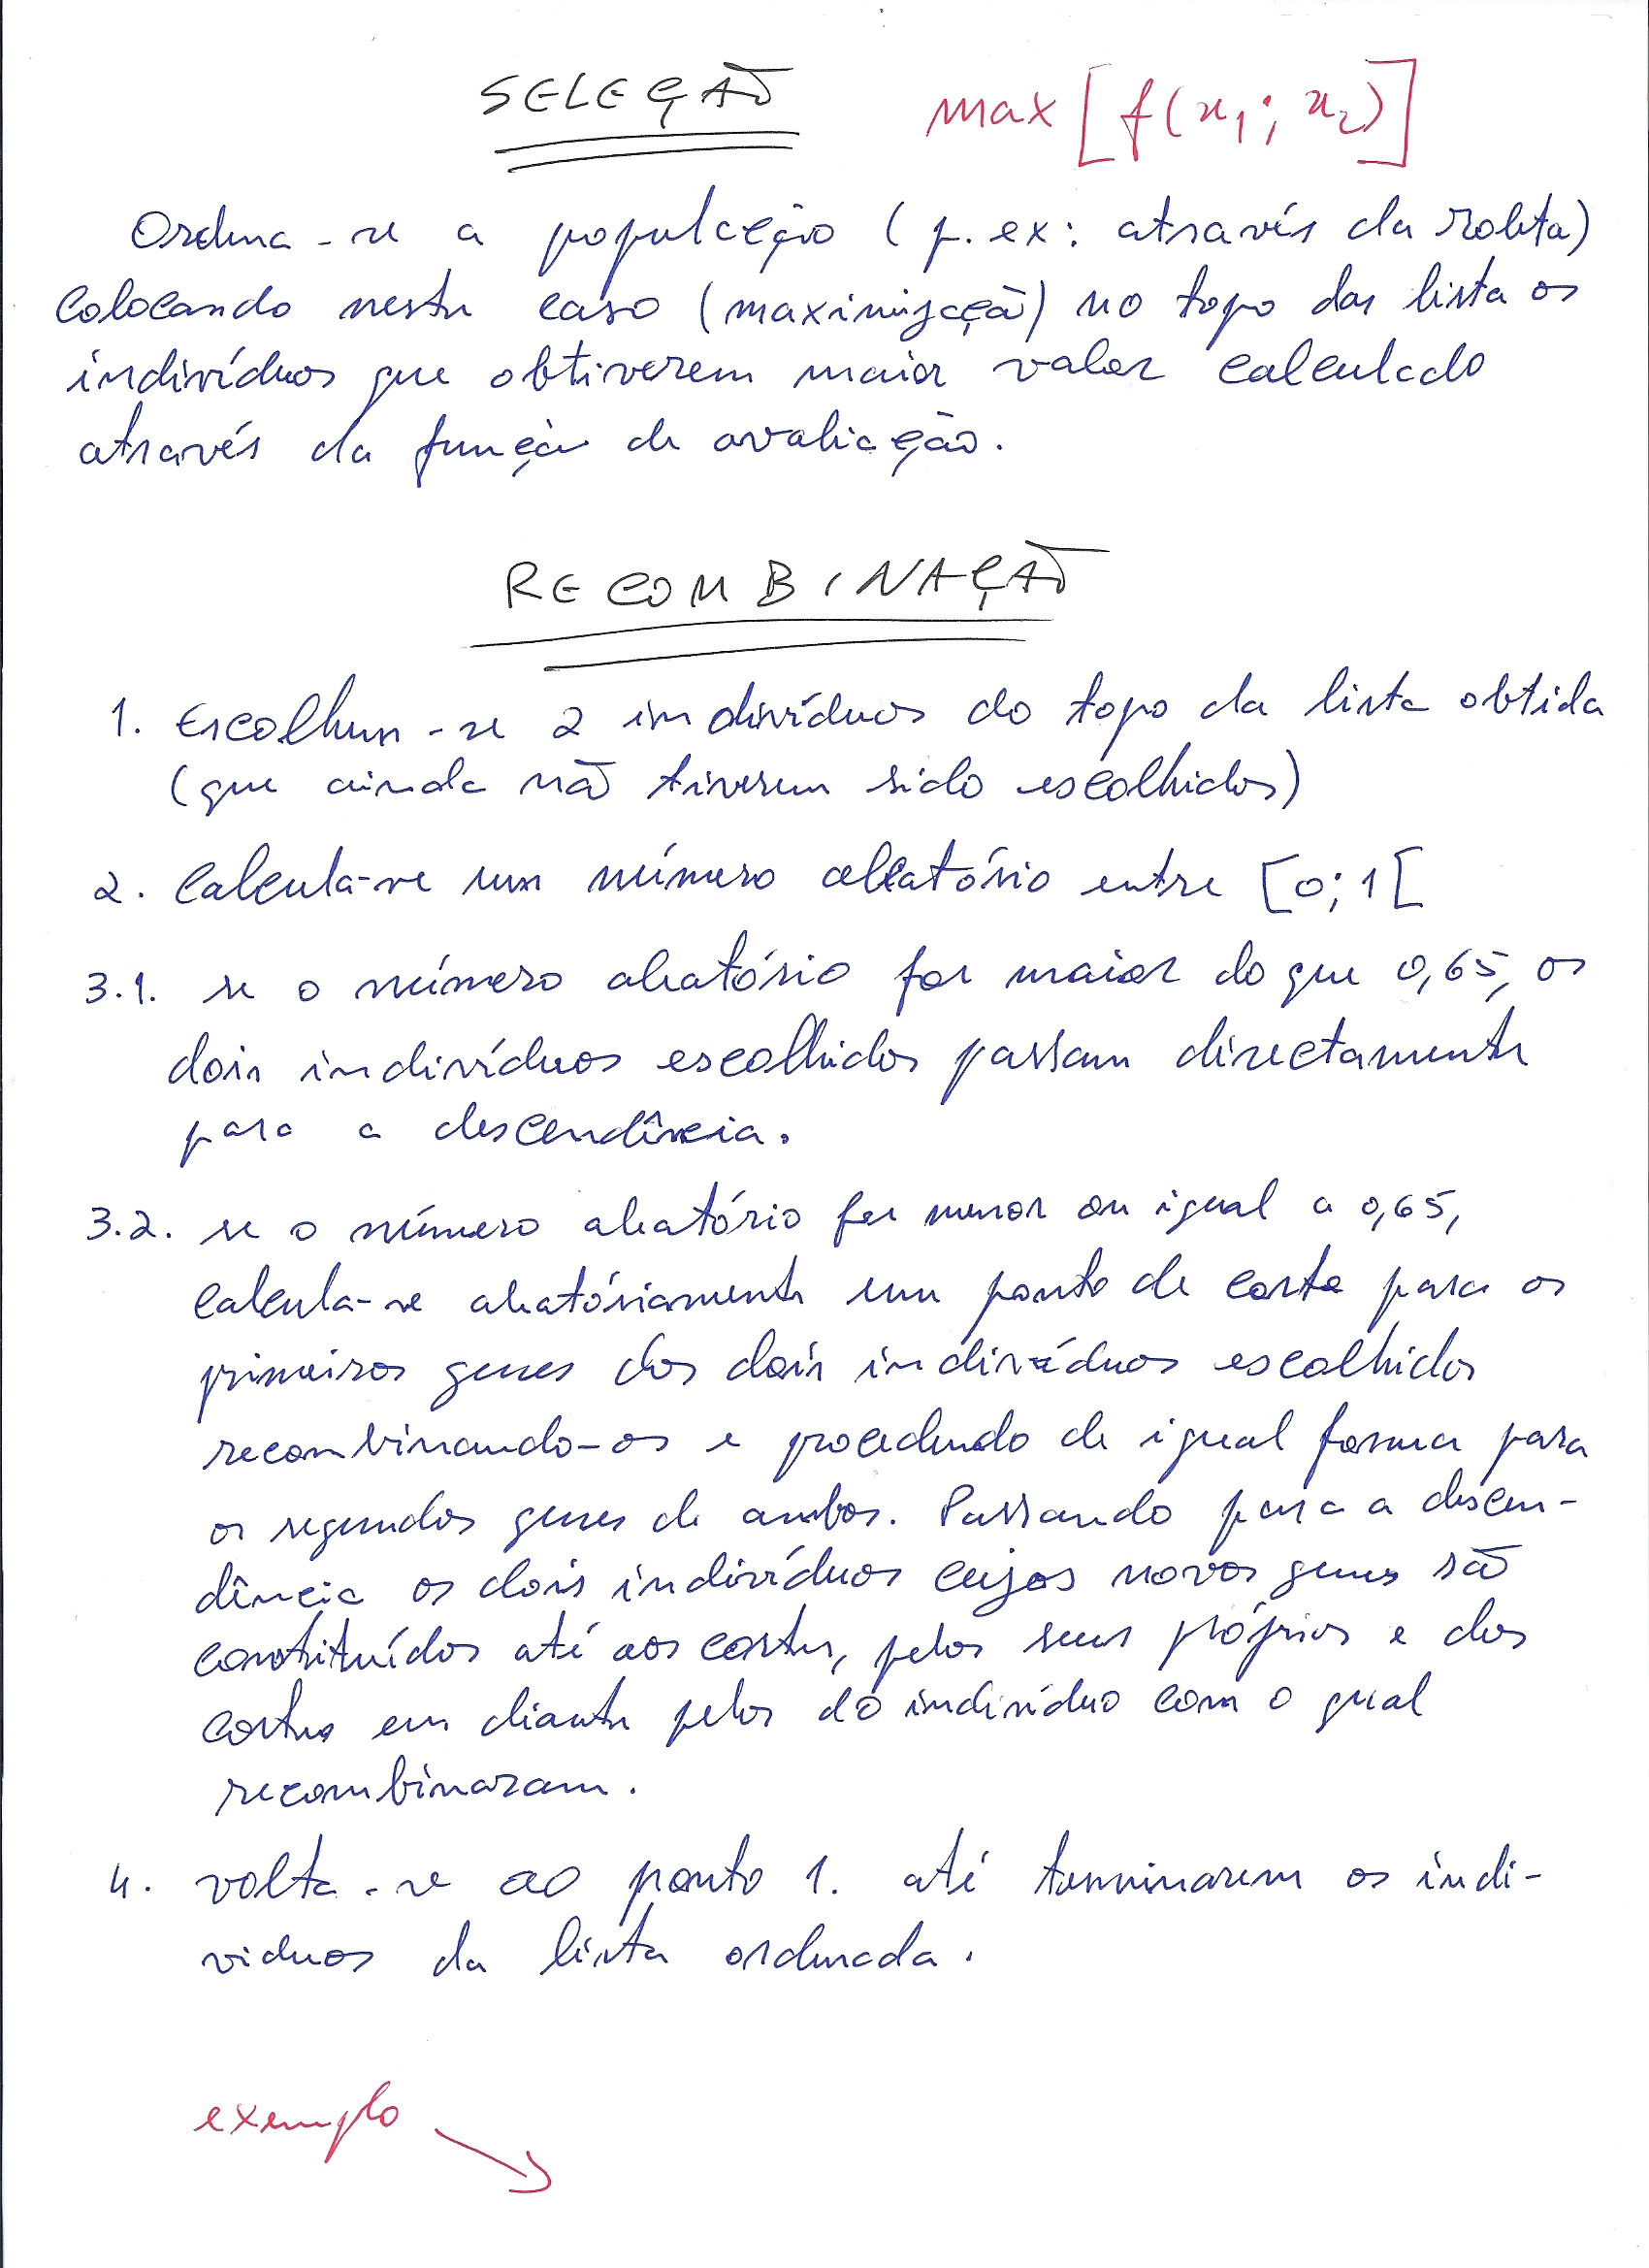 SELEÇÃO max [f(x₁; x₂)]
Ordena-se a população (p. ex: através da roleta)
colocando neste caso (maximização) no topo das lista os
indivíduos que obtiverem maior valor calculado
através da função de avaliação.
RECOMBINAÇÃO
1. Escolhem-se 2 indivíduos do topo da lista obtida
(que ainda não tiverem sido escolhidos)
2. Calcula-se um número aleatório entre [0; 1[
3.1. se o número aleatório for maior do que 0,65, os
dois indivíduos escolhidos passam directamente
para a descendência.
3.2. se o número aleatório for menor ou igual a 0,65,
calcula-se aleatóriamente um ponto de corte para os
primeiros genes dos dois indivíduos escolhidos
recombinando-os e procedendo de igual forma para
os segundos genes de ambos. Passando para a descen-
dência os dois indivíduos cujos novos genes são
constituídos até aos cortes, pelos seus próprios e dos
cortes em diante pelos do indivíduo com o qual
recombinaram.
4. volta-se ao ponto 1. até terminarem os indi-
viduos da lista ordenada.
exemplo